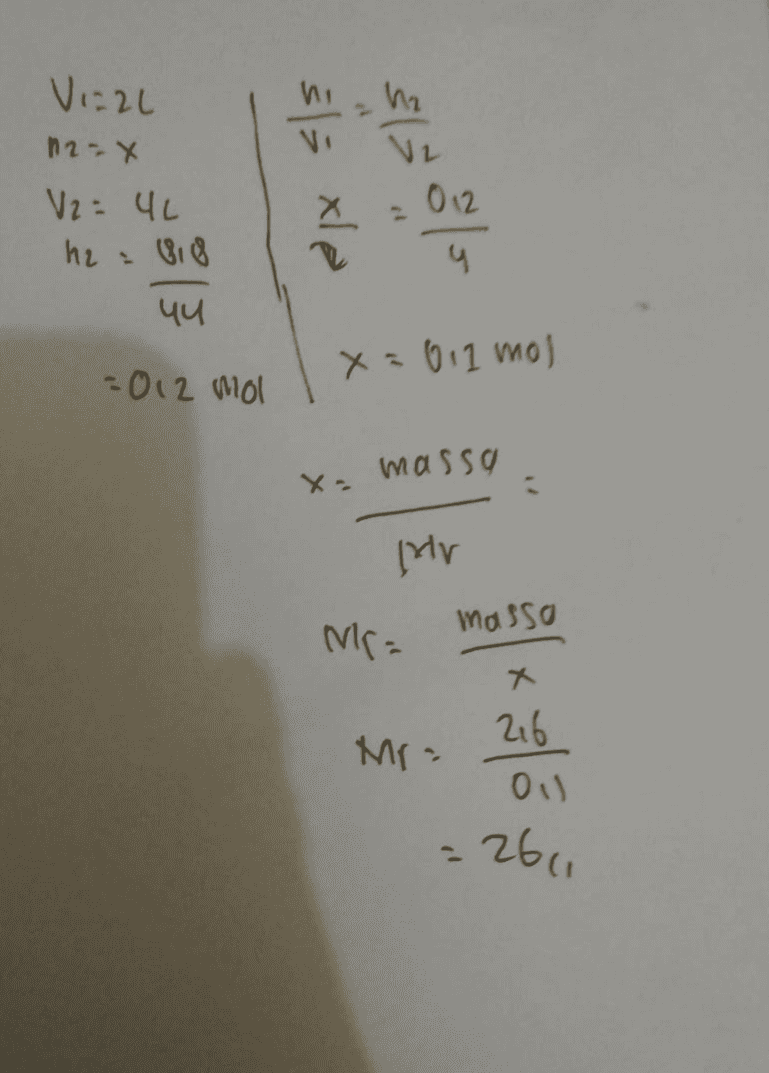 V1=2L
n2=x
V2= 4L
n2 = 8,8
44
=0,2 mol
n1 = n2
V1 V2
x = 0,2
2 4
x = 0,1 mol
x= massa =
Mr
Mr= massa
x
Mr= 2,6
0,1
= 26,,